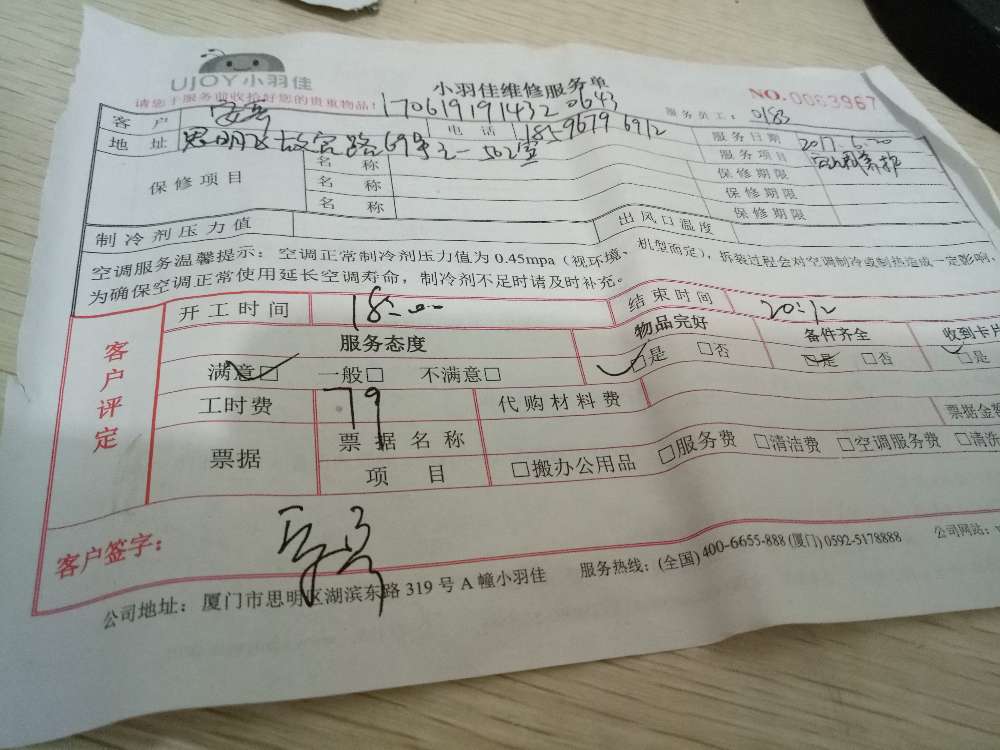 UJOY小羽佳
小羽佳维修服务单
NO.0063967
请您于服务前收拾好您的贵重物品!
170619191432 0643
服务员工: 0183
客户 电话 服务日期 2017.6.20
地址 思明区故宫路69号之一502室 服务项目
保修项目 名称 保修期限
名称 保修期限
名称 保修期限
制冷剂压力值 出风口温度
空调服务温馨提示: 空调正常制冷剂压力值为 0.45mpa (视环境、机型而定), 拆装过程会对空调制冷或制热造成一定影响,
为确保空调正常使用延长空调寿命, 制冷剂不足时请及时补充。
客户评定
开工时间 18:00 结束时间 20:12
服务态度 物品完好 备件齐全 收到卡片
满意□ 一般□ 不满意□ □是 □否 □是 □否 □是
工时费 79 代购材料费
票据 票据名称 □搬办公用品 □服务费 □清洁费 □空调服务费 □清洗
项目
客户签字:
公司地址: 厦门市思明区湖滨东路 319 号 A 幢小羽佳 服务热线: (全国) 400-6655-888 (厦门) 0592-5178888 公司网站: